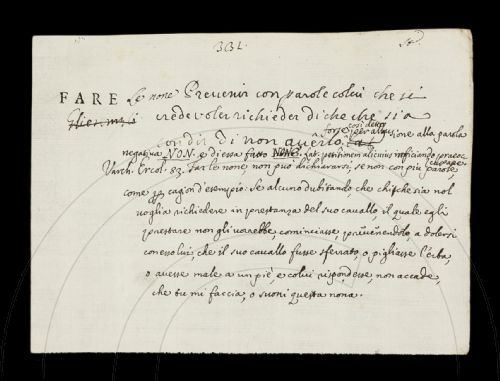 331.
FARE Le none Prevenir con parole colui che si
vede voler richieder di che che sia
con dir di non averlo.
forse così detto per allusione alla parola
negativa NON. e di essa fatto NONE. Lat. petitionem alicuius inficiando preoccupare
Varch. Ercol. 82. Far le none non può dichiararsi, se non con più parole,
come per cagion d'esempio: Se alcuno dubitando che chi che sia nol
voglia richiedere in prestanza del suo cavallo, il quale egli
prestare non gli vorrebbe, cominciasse, prevenendolo, a dolersi
con esso lui, che il suo cavallo fusse sferrato, o pigliasse l'erba,
o avesse male a un piè, e colui rispondesse, non accade,
che tu mi faccia, o suoni questa nona.